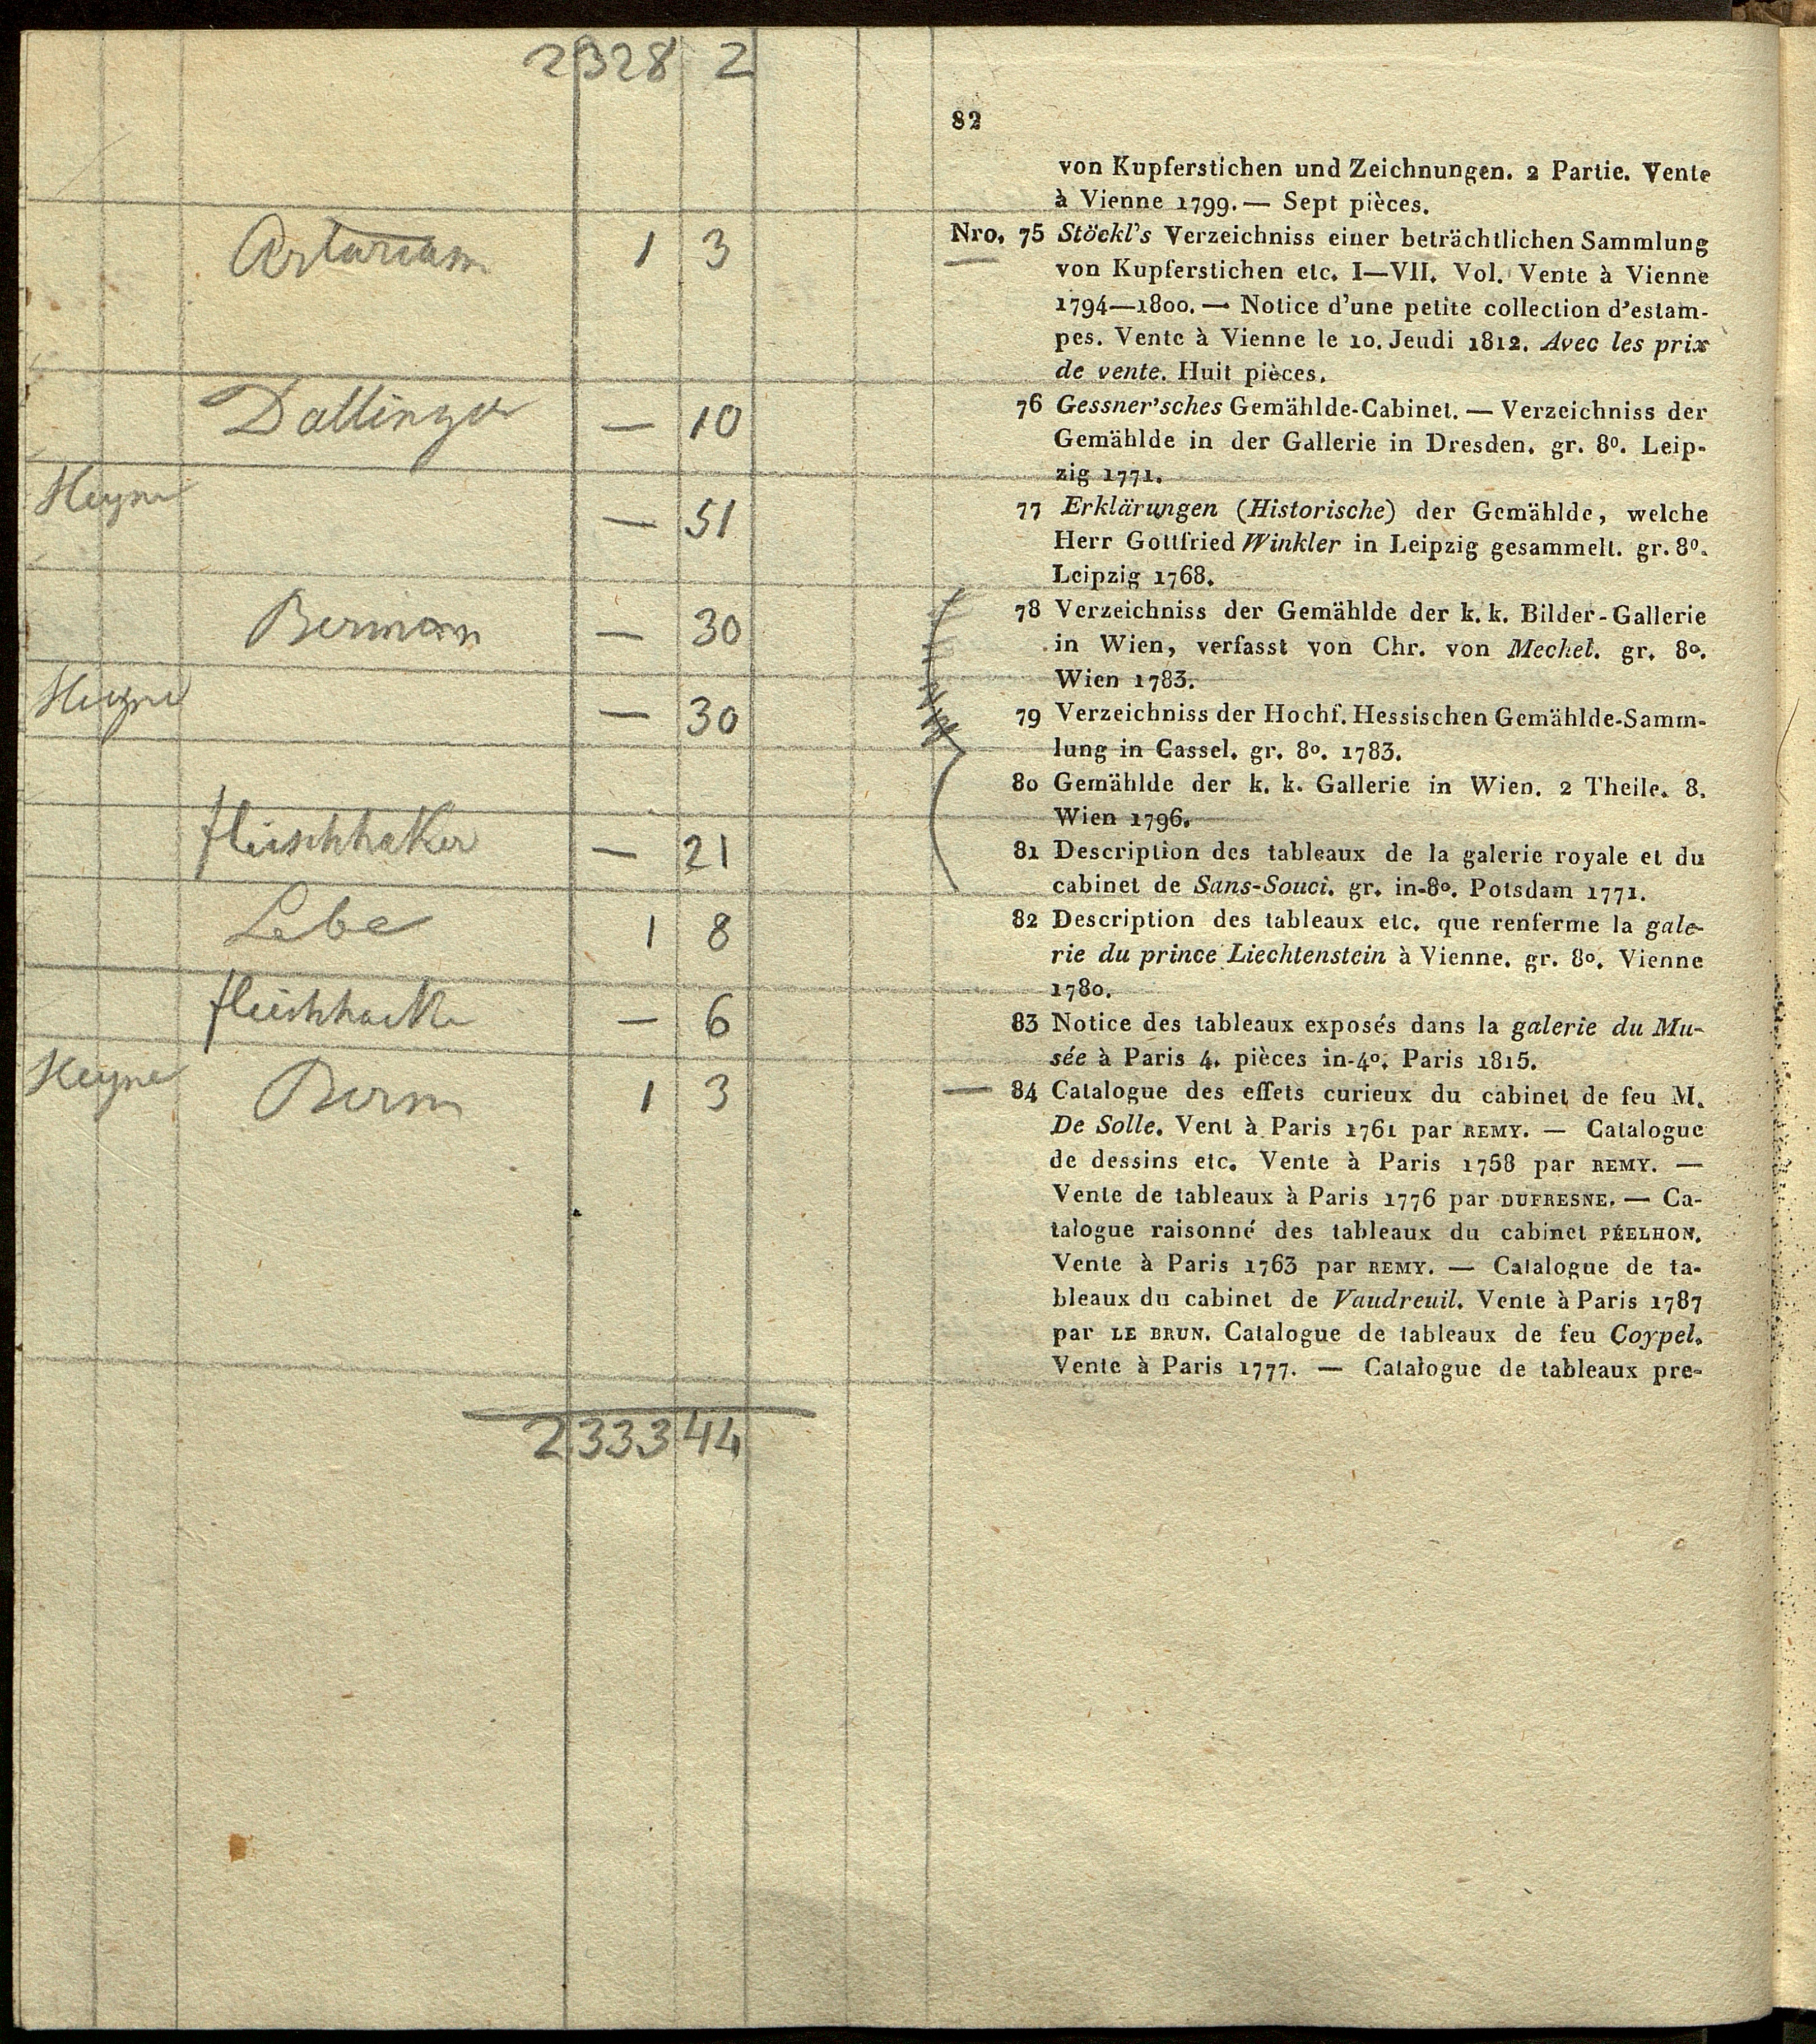 2328 2
82
von Kupferstichen und Zeichnungen. 2 Partie. Vente
à Vienne 1799. — Sept pièces.
1 3
Nro. 75 Stöckl's Verzeichniss einer beträchtlichen Sammlung
von Kupferstichen etc. I—VII. Vol. Vente à Vienne
1794—1800. — Notice d'une petite collection d'estam-
pes. Vente à Vienne le 10. Jeudi 1812. Avec les prix
de vente. Huit pièces.
Dallinger — 10
76 Gessner'sches Gemählde-Cabinet. — Verzeichniss der
Gemählde in der Gallerie in Dresden. gr. 8º. Leip-
zig 1771.
Heyne — 51
77 Erklärungen (Historische) der Gemählde, welche
Herr Gottfried Winkler in Leipzig gesammelt. gr. 8º.
Leipzig 1768.
Bermann — 30
78 Verzeichniss der Gemählde der k. k. Bilder-Gallerie
in Wien, verfasst von Chr. von Mechel. gr. 8º.
Wien 1783.
Heyne — 30
79 Verzeichniss der Hochf. Hessischen Gemählde-Samm-
lung in Cassel. gr. 8º. 1783.
80 Gemählde der k. k. Gallerie in Wien. 2 Theile. 8.
Wien 1796.
fleischhaker — 21
81 Description des tableaux de la galerie royale et du
cabinet de Sans-Souci. gr. in-8º. Potsdam 1771.
1 8
82 Description des tableaux etc. que renferme la gale-
rie du prince Liechtenstein à Vienne. gr. 8º. Vienne
1780.
— 6
83 Notice des tableaux exposés dans la galerie du Mu-
sée à Paris 4. pièces in-4º. Paris 1815.
Heyne Berm 1 3
— 84 Catalogue des effets curieux du cabinet de feu M.
De Solle. Vent à Paris 1761 par REMY. — Catalogue
de dessins etc. Vente à Paris 1758 par REMY. —
Vente de tableaux à Paris 1776 par DUFRESNE. — Ca-
talogue raisonné des tableaux du cabinet PÉELHON.
Vente à Paris 1763 par REMY. — Catalogue de ta-
bleaux du cabinet de Vaudreuil. Vente à Paris 1787
par LE BRUN. Catalogue de tableaux de feu Coypel.
Vente à Paris 1777. — Catalogue de tableaux pre-
2333 44